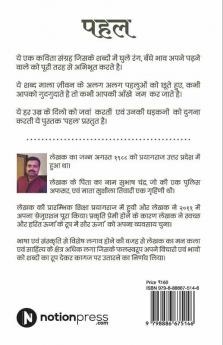 पहल
ये एक कविता संग्रह जिसके शब्दों में घुले रंग, बँधे भाव अपने पढ़ने
वाले को पूरी तरह से अभिभूत करते है।
ये शब्द माला जीवन के अलग अलग पहलुओं को छूते हुए, कभी
आपको गुदगुदाते है तो कभी आपकी आँखे नम कर जाते है।
ये हर उम्र के दिलों को जवां करती एवं उनकी धड़कनों को दुगना
करती ये पुस्तक 'पहल' प्रस्तुत है।
लेखक का जन्म अगस्त १९८८ को प्रयागराज उत्तर प्रदेश में
हुआ था।
लेखक के पिता का नाम सुभाष चंद्र, जी की एक पुलिस
अफसर, एवं माता सुशीला तिवारी एक गृहिणी थी।
लेखक की प्रारम्भिक शिक्षा प्रयागराज में हुयी और लेखक ने २०११ में
अपना ग्रेजुएशन पूरा किया। प्रकृति प्रेमी होने के कारण लेखक ने स्वच्छ
और हरित ऊर्जा के रूप में सौर ऊर्जा को अपना व्यवसाय चुना।
भाषा एवं संस्कृति से विशेष लगाव होने की वजह से लेखक का मन कला
एवं साहित्य के क्षेत्र अधिक लगा जिसके फलस्वरूप अपने विचारों एवं भावों
को शब्दों का रूप देकर कागज पर उतारने का निर्णय लिया।
Price ₹160
ISBN 979-8-88667-514-6
notionpress
.com
9 798886 675146